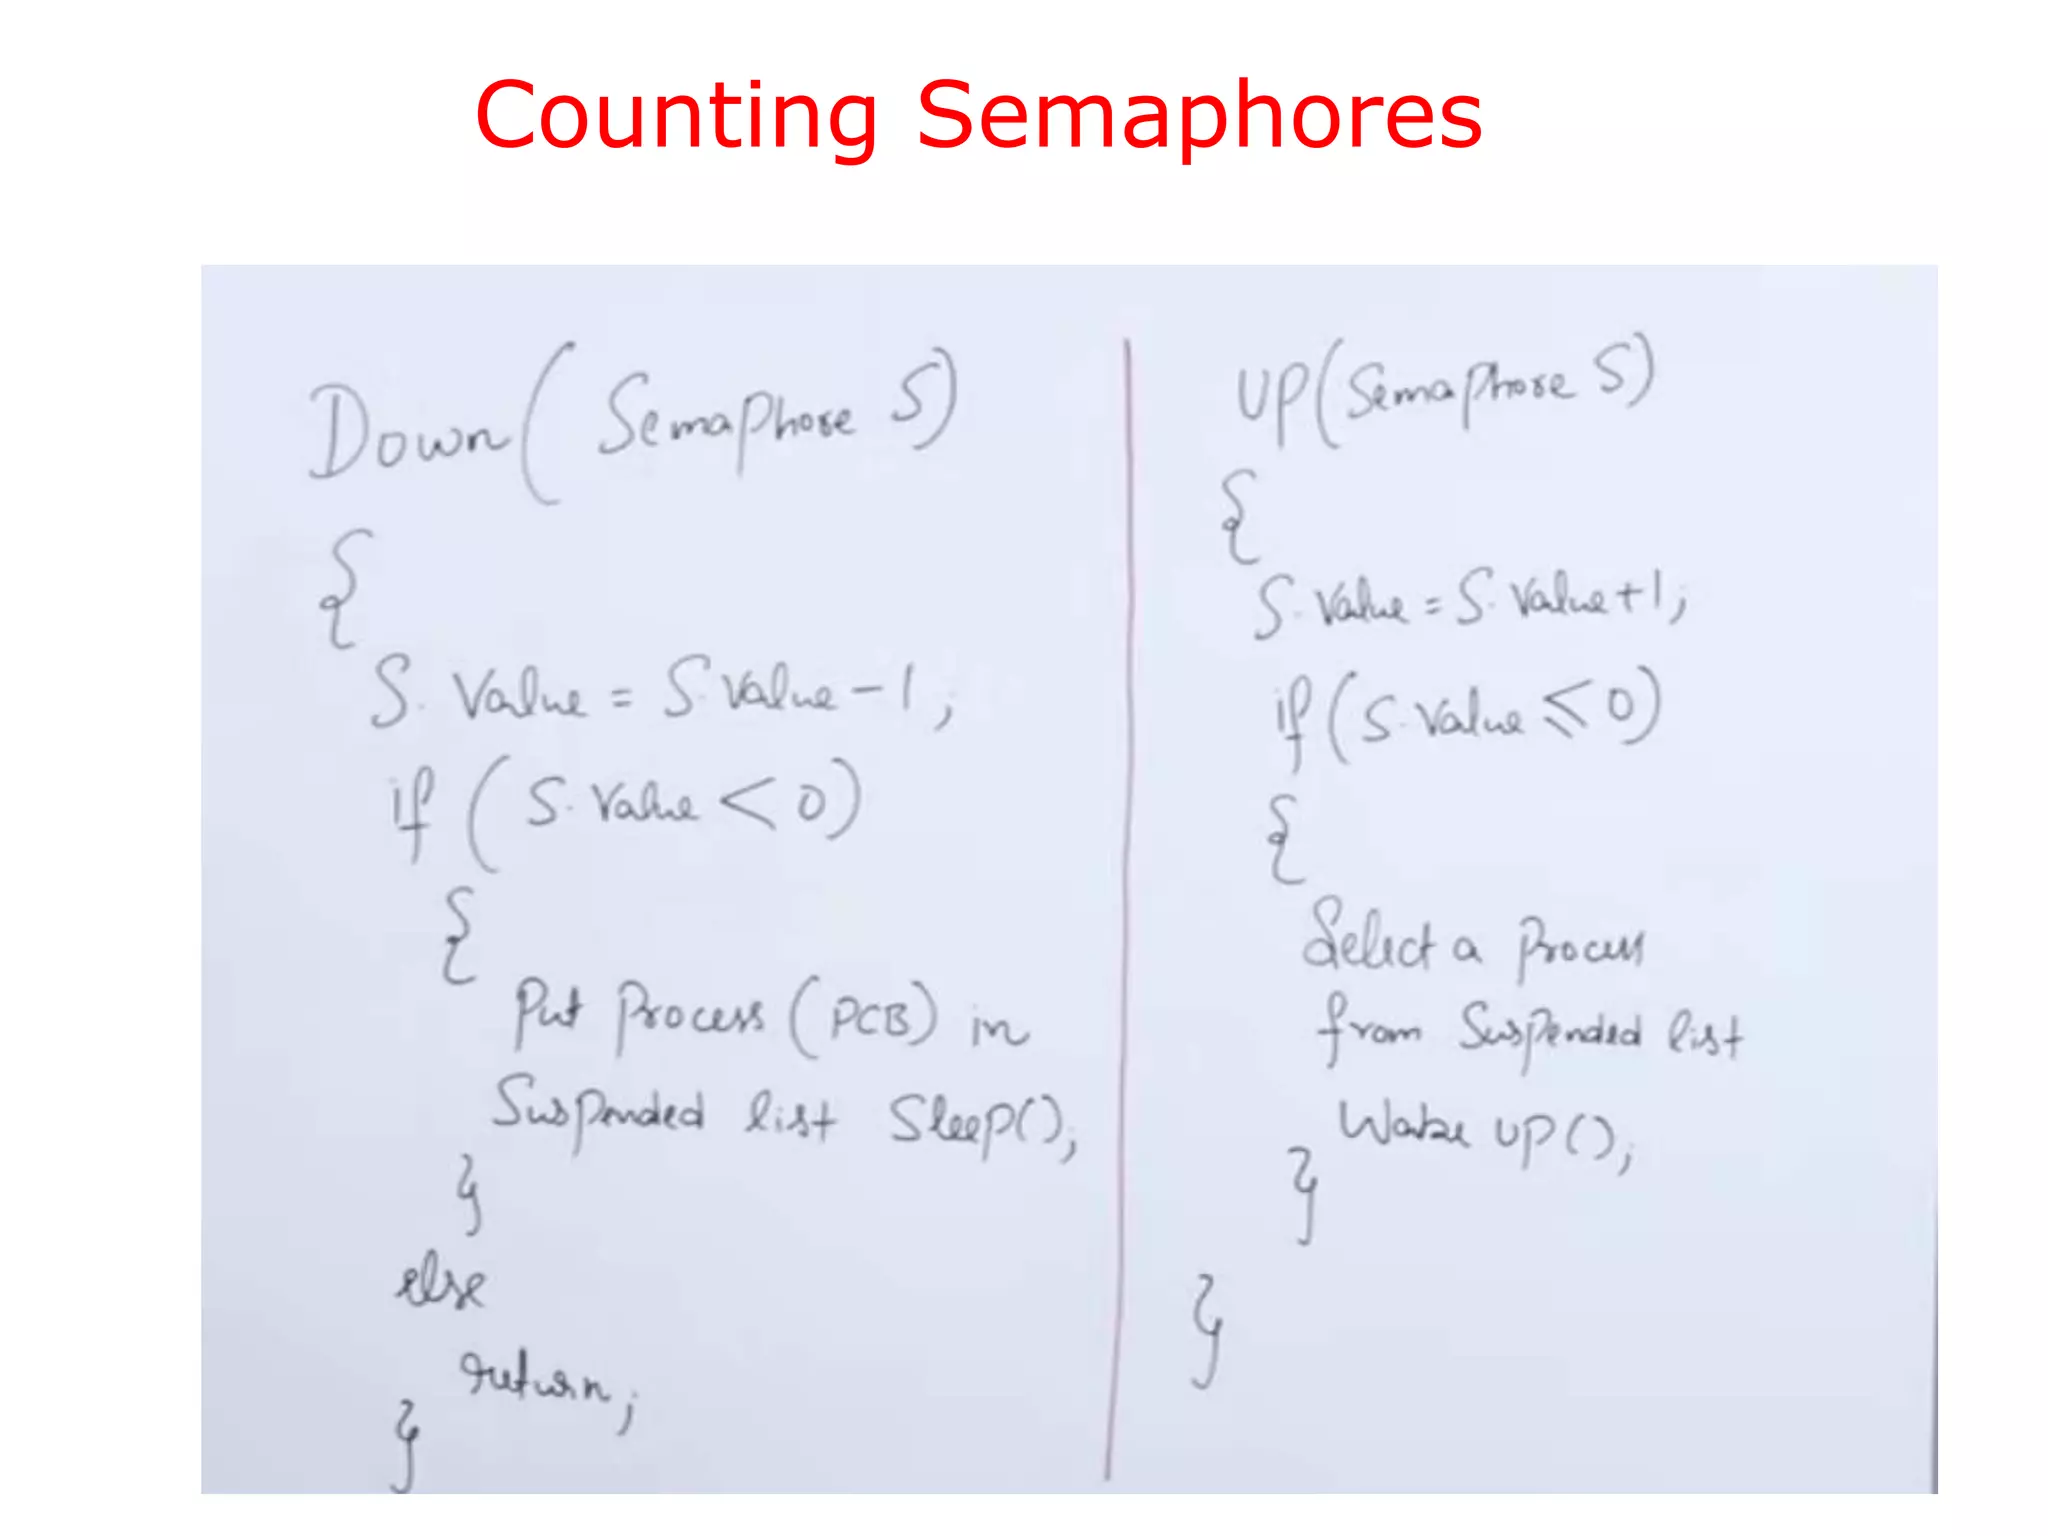 Counting Semaphores
Down(Semaphore S)
{
S.Value = S.Value-1;
if (S.Value < 0)
{
Put Process (PCB) in
Suspended list Sleep();
}
else
return;
}
UP(Semaphore S)
{
S.Value = S.Value+1;
if (S.Value ≤ 0)
{
Select a Process
from Suspended list
Wake UP();
}
}